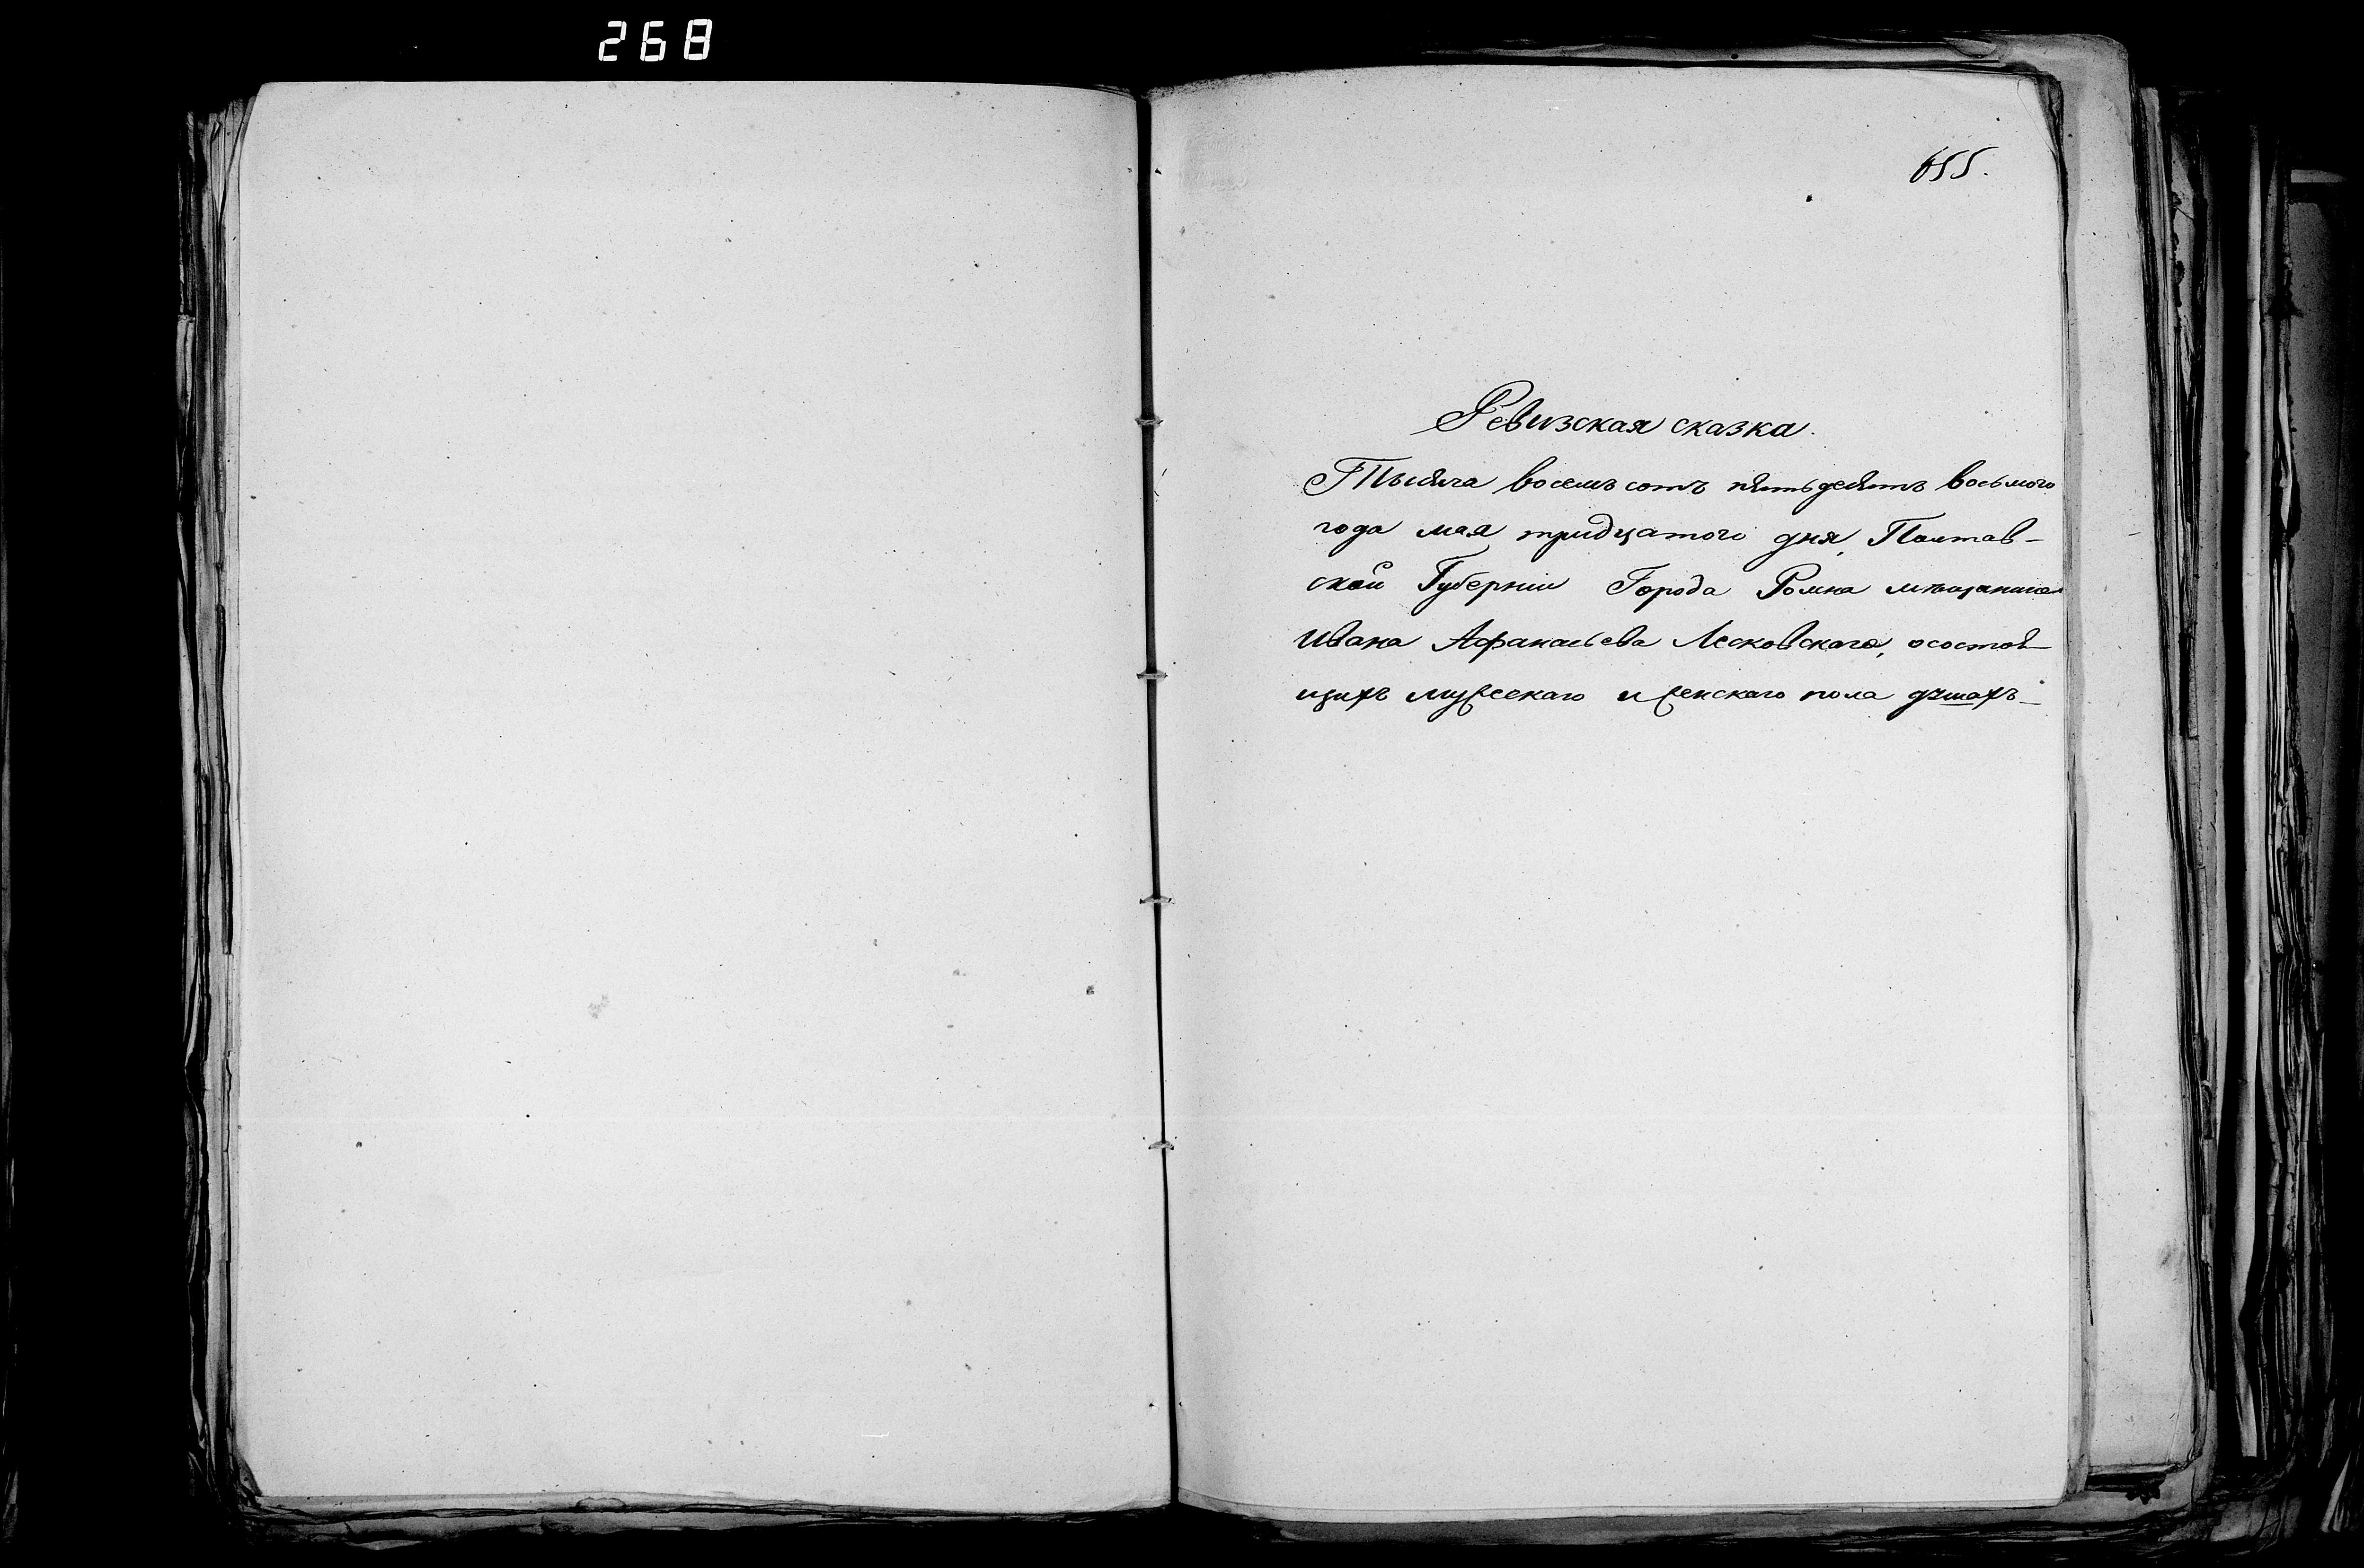 268
655.
Ревизская сказка.
Тысяча восемъ сотъ пятьдесятъ восьмого
года мая тридцатого дня, Полтав-
ской Губерніи Города Ромна мѣщанина
Ивана Афанасьева Лесковскаго, осостоя-
щихъ мужескаго и женскаго пола душахъ_